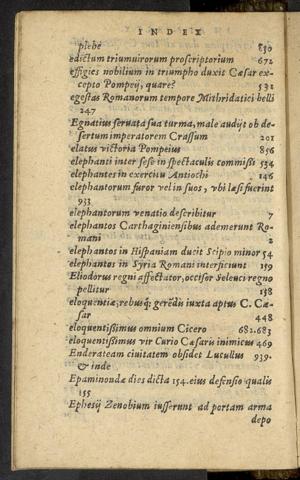 INDEX
plebē 830
edictum triumuirorum proscriptorium 672
effigies nobilium in triumpho duxit Cæsar ex-
cepto Pompeij, quare? 532
egestas Romanorum tempore Mithridatici belli
247
Egnatius seruata sua turma, male audijt ob de-
sertum imperatorem Crassum 201
elatus victoria Pompeius 856
elephanti inter sese in spectaculis commissi 534
elephantes in exercitu Antiochi 146
elephantorum furor vel in suos, vbi læsi fuerint
933
elephantorum venatio describitur 7
elephantos Carthaginiensibus ademerunt Ro-
mani 2
elephantos in Hispaniam ducit Scipio minor 54
elephantos in Syria Romani interficiunt 159
Eliodorus regni affectator, occisor Seleuci regno
pellitur 158
eloquentiæ, rebusq; gerēdis iuxta aptus C. Cæ-
sar 448
eloquentissimus omnium Cicero 682.683
eloquentissimus vir Curio Cæsaris inimicus 469
Enderateam ciuitatem obsidet Lucullus 939.
& inde
Epaminondæ dies dicta 154. eius defensio qualis
155
Ephesij Zenobium iusserunt ad portam arma
depo